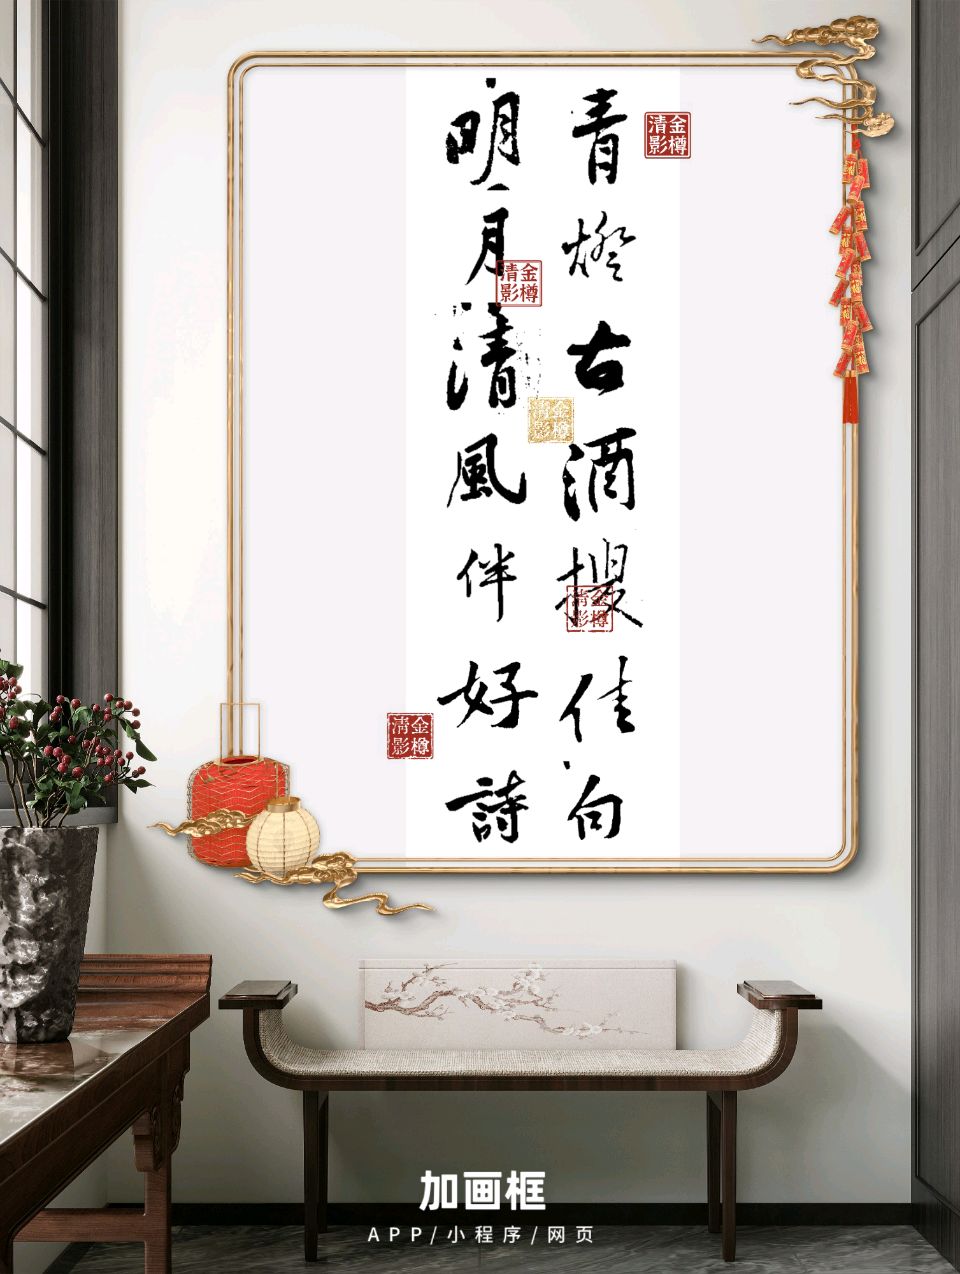 青燈古酒搜佳句
明月清風伴好詩
金樽
清影
金樽
清影
金樽
清影
金樽
清影
金樽
清影
加画框
APP/小程序/网页